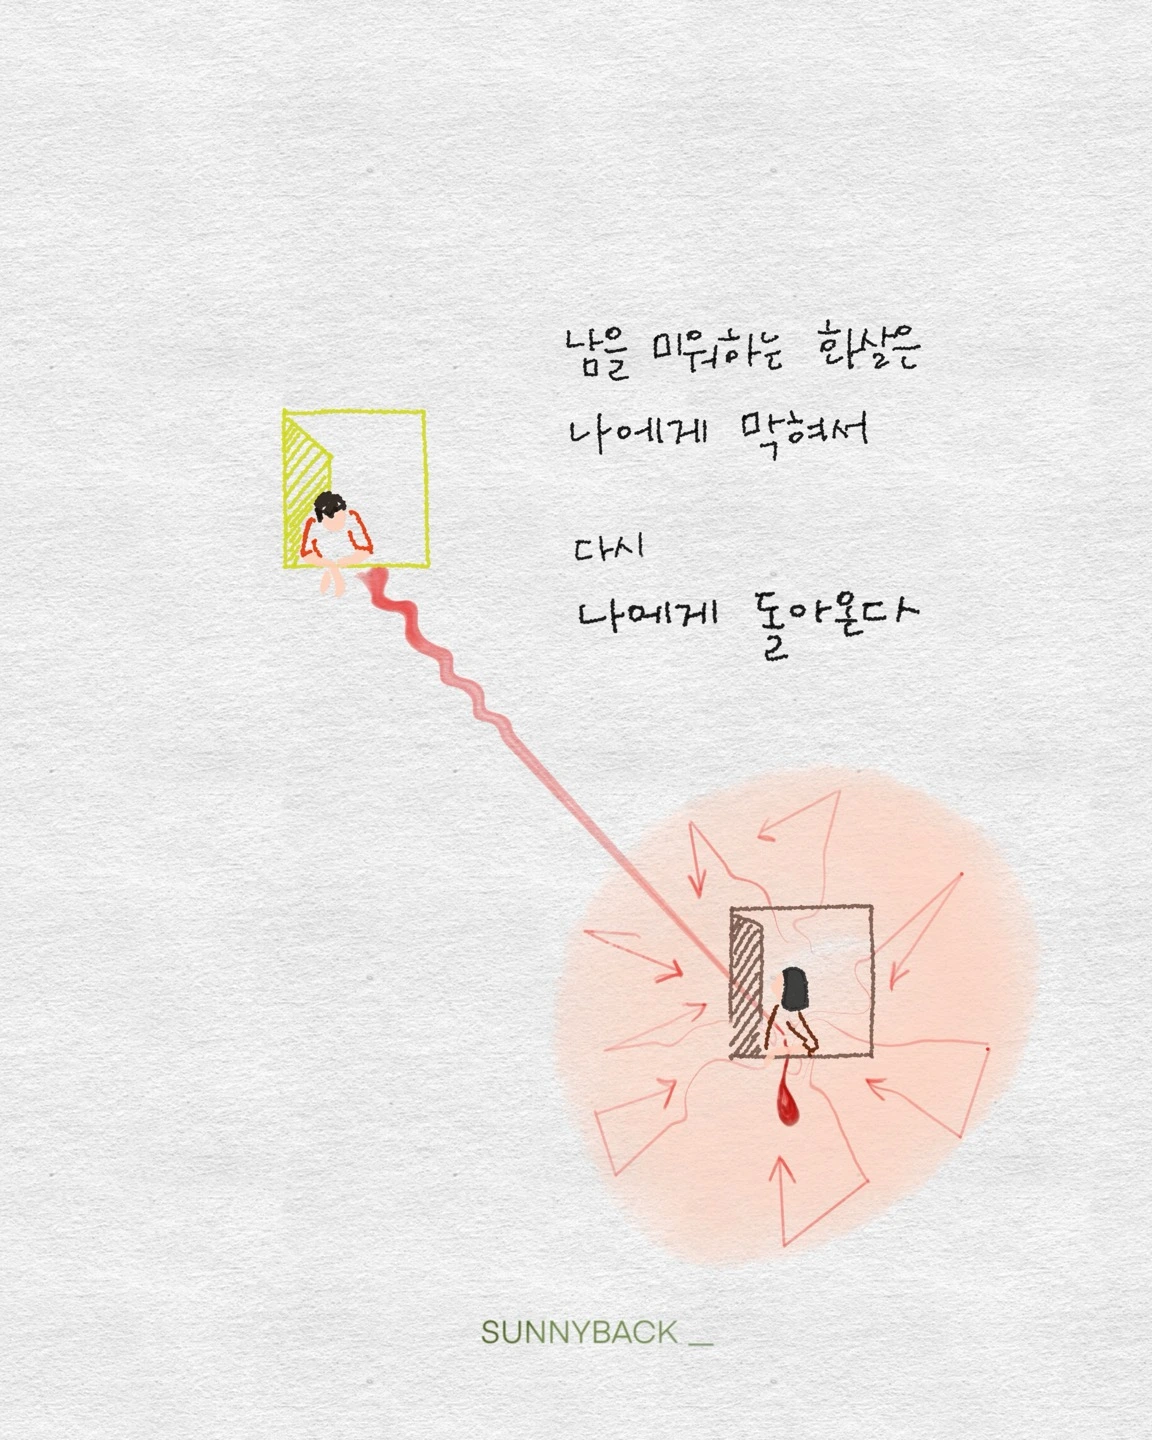 남을 미워하는 화살은
나에게 막혀서
다시
나에게 돌아온다
SUNNYBACK _